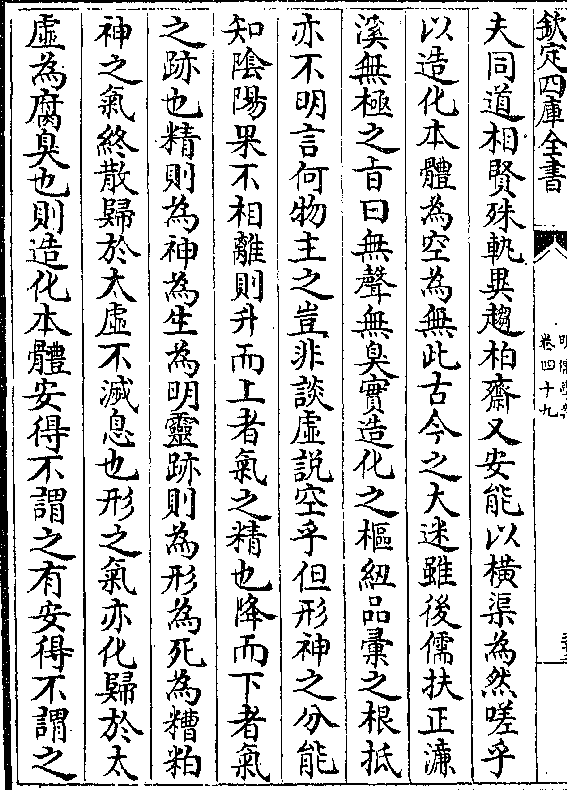 欽定四庫全書
卷四十九
夫同道相賢殊軌異趨柏齋又安能以橫渠為然嗟乎
以造化本體為空為無此古今之大迷雖後儒扶正濂
溪無極之㫖曰無聲無臭實造化之樞紐品彚之根抵
亦不明言何物主之豈非談虚説空乎但形神之分能
知隂陽果不相離則升而上者氣之精也降而下者氣
之跡也精則為神為生為明靈跡則為形為死為糟粕
神之氣終散歸於太虚不滅息也形之氣亦化歸於太
虚為腐臭也則造化本體安得不謂之有安得不謂之